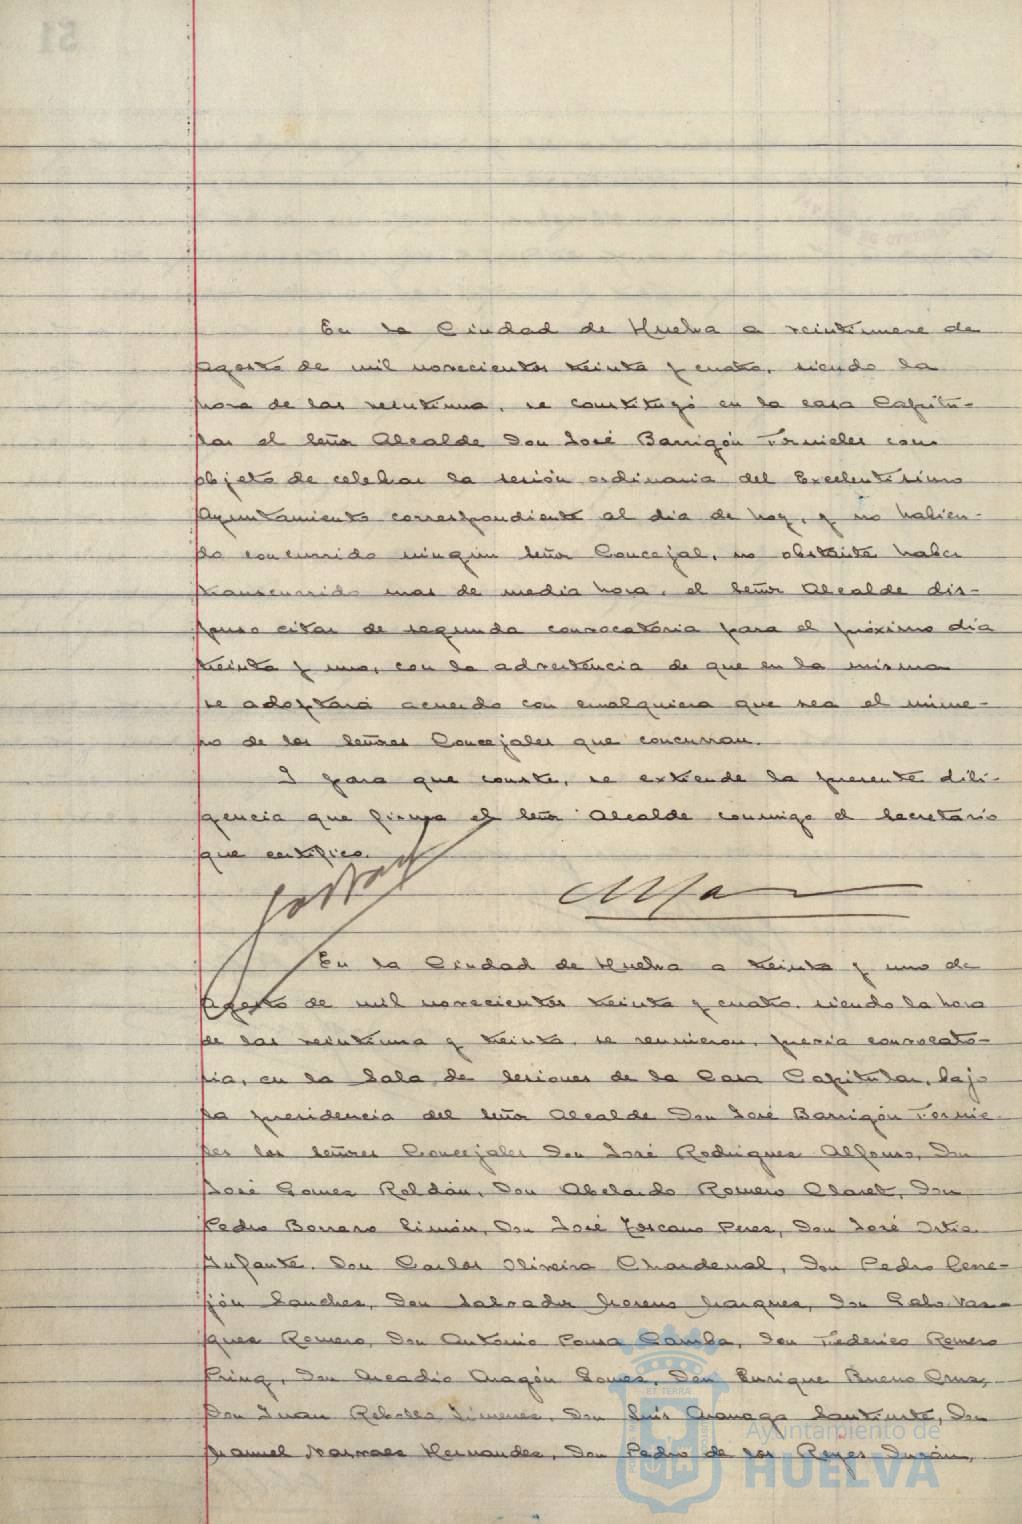 En la Ciudad de Huelva a veintinueve de
Agosto de mil novecientos treinta y cuatro, siendo la
hora de las veintiuna, se constituyó en la casa Capitu-
lar el Señor Alcalde Don José Barrigón Fornieles con
objeto de celebrar la sesión ordinaria del Excelentísimo
Ayuntamiento correspondiente al dia de hoy, y no habien-
do concurrido ningún Señor Concejal, no obstante haber
transcurrido mas de media hora, el Señor Alcalde dis-
puso citar de segunda convocatoria para el próximo día
treinta y uno, con la advertencia de que en la misma
se adoptará acuerdo con cualquiera que sea el núme-
ro de los Señores Concejales que concurran.
Y para que conste, se extiende la presente dili-
gencia que firma el Señor Alcalde conmigo el Secretario
que certifico.
En la Ciudad de Huelva a treinta y uno de
Agosto de mil novecientos treinta y cuatro, siendo la hora
de las veintiuna y treinta, se reunieron, previa convocato-
ria, en la Sala de Sesiones de la Casa Capitular, bajo
la presidencia del Señor Alcalde Don José Barrigón Fornie-
les los Señores Concejales Don José Rodríguez Alfonso, Don
José Gomez Roldán, Don Abelardo Romero Claret, Don
Pedro Borrero Limón, Don José Toscano Perez, Don José Ortiz
Infante, Don Carlos Oliveira Chardenal, Don Pedro Cere-
jón Sanchez, Don Salvador Moreno Marquez, Don Galo Vaz-
quez Romero, Don Antonio Pousa Camba, Don Federico Romero
Pring, Don Arcadio Aragón Gomez, Don Enrique Bueno Cruz,
Don Juan Rebollo Jimenez, Don Luis Aranaga Santiuste, Don
Manuel Narvaez Hernandez, Don Pedro de los Reyes Durán,
Ayuntamiento de
HUELVA